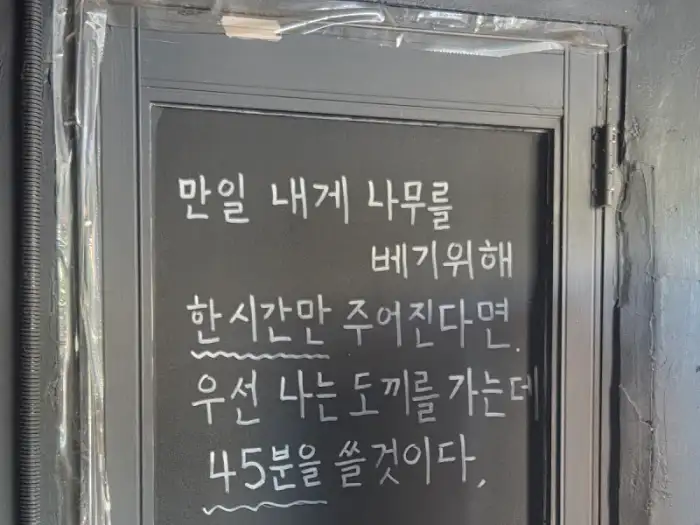 만일 내게 나무를
베기위해
한시간만 주어진다면.
우선 나는 도끼를 가는데
45분을 쓸것이다,